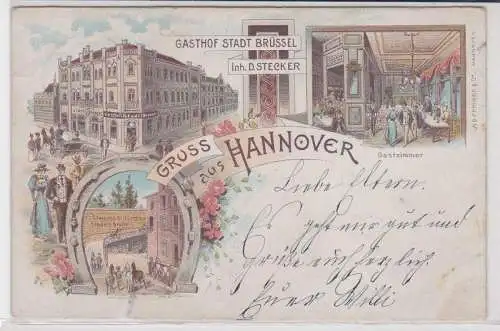 GASTHOF STADT BRÜSSEL
Inh. D. STECKER
Gastzimmer
GRUSS
aus
HANNOVER
Liebe Eltern.
Es geht mir gut und
Grüße euch herzlich.
Euer Willi